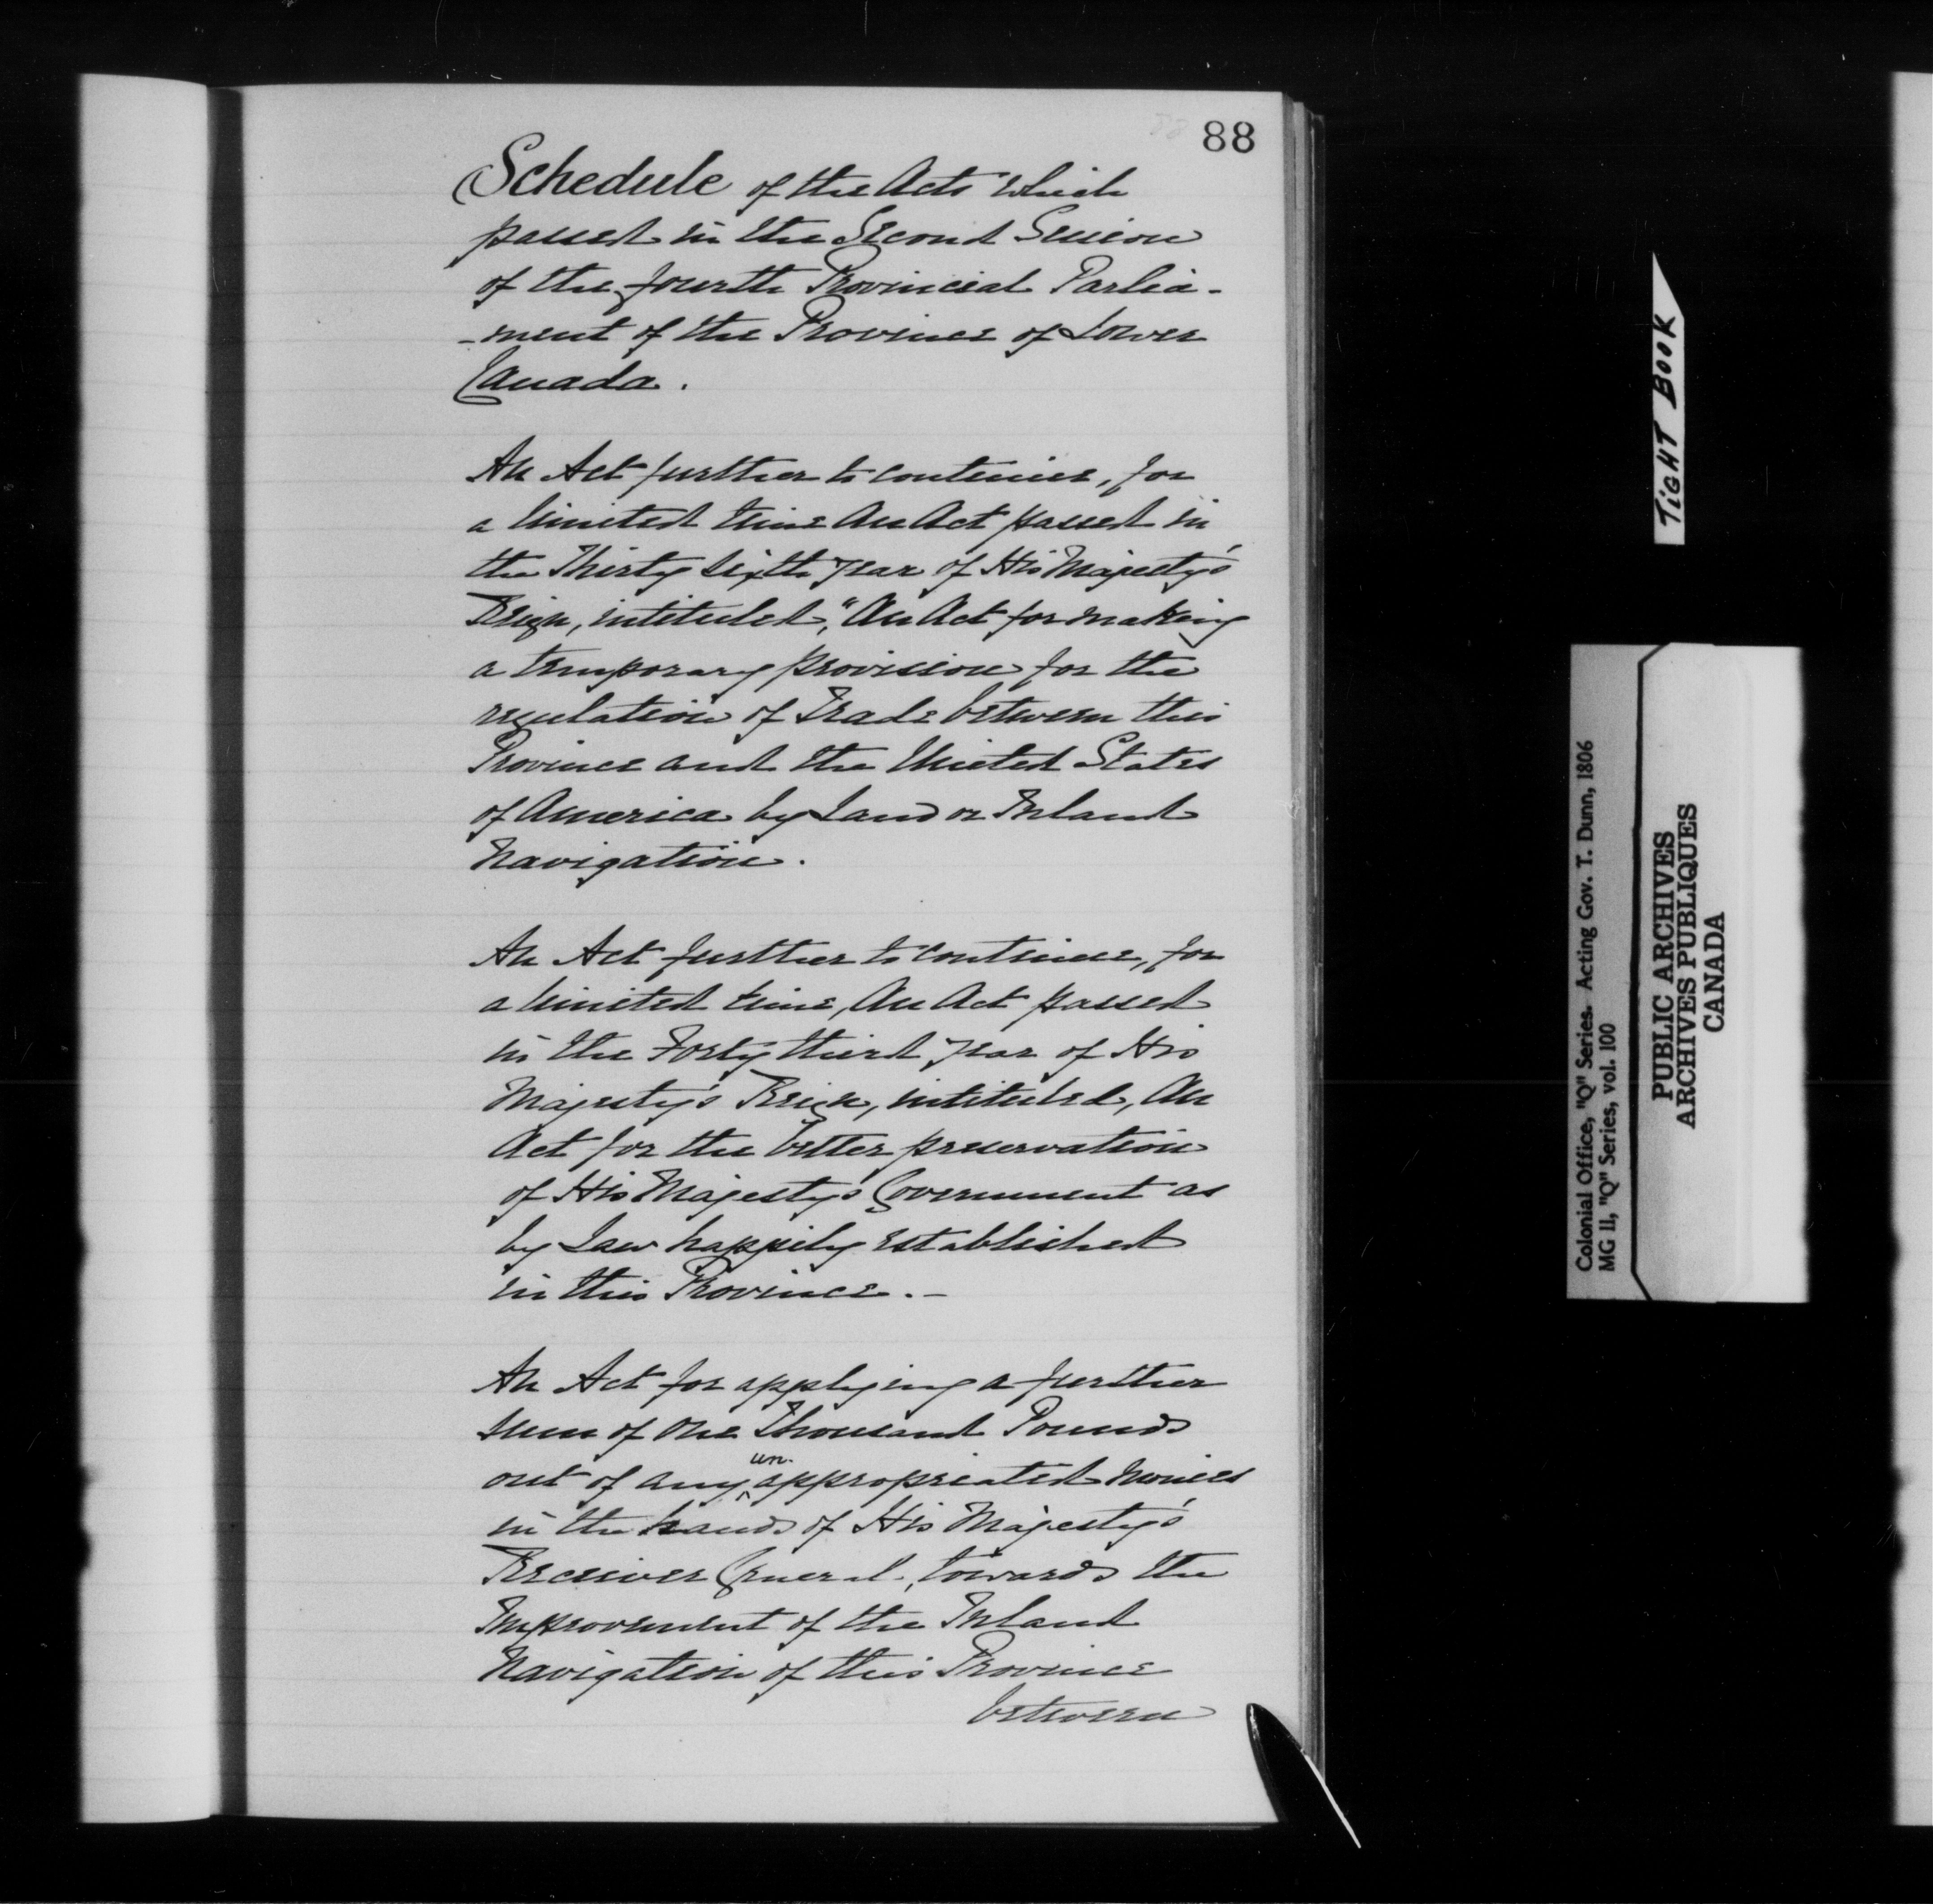 88
Schedule of the Acts which
passed in the Second Session
of the fourth Provincial Parlia-
-ment of the Province of Lower
Canada.
An Act further to continue, for
a limited time An Act passed in
the Thirty sixth year of His Majesty's
Reign, intituled, "An Act for making
a temporary provision for the
regulation of Trade between this
Province and the United States
of America by Land or Inland
Navigation.
An Act further to continue, for
a limited time, An Act passed
in the Forty third year of His
Majesty's Reign, intituled, An
Act for the better preservation
of His Majesty's Government as
by Law happily established
in this Province.-
An Act for applying a further
sum of one Thousand Pounds
out of any unappropriated monies
in the hands of His Majesty's
Receiver General, towards the
Improvement of the Inland
Navigation of this Province
between
TiGHT BOOK
Colonial Office, "Q" Series. Acting Gov. T. Dunn, 1806
MG 11, "Q" Series, vol. 100
PUBLIC ARCHIVES
ARCHIVES PUBLIQUES
CANADA